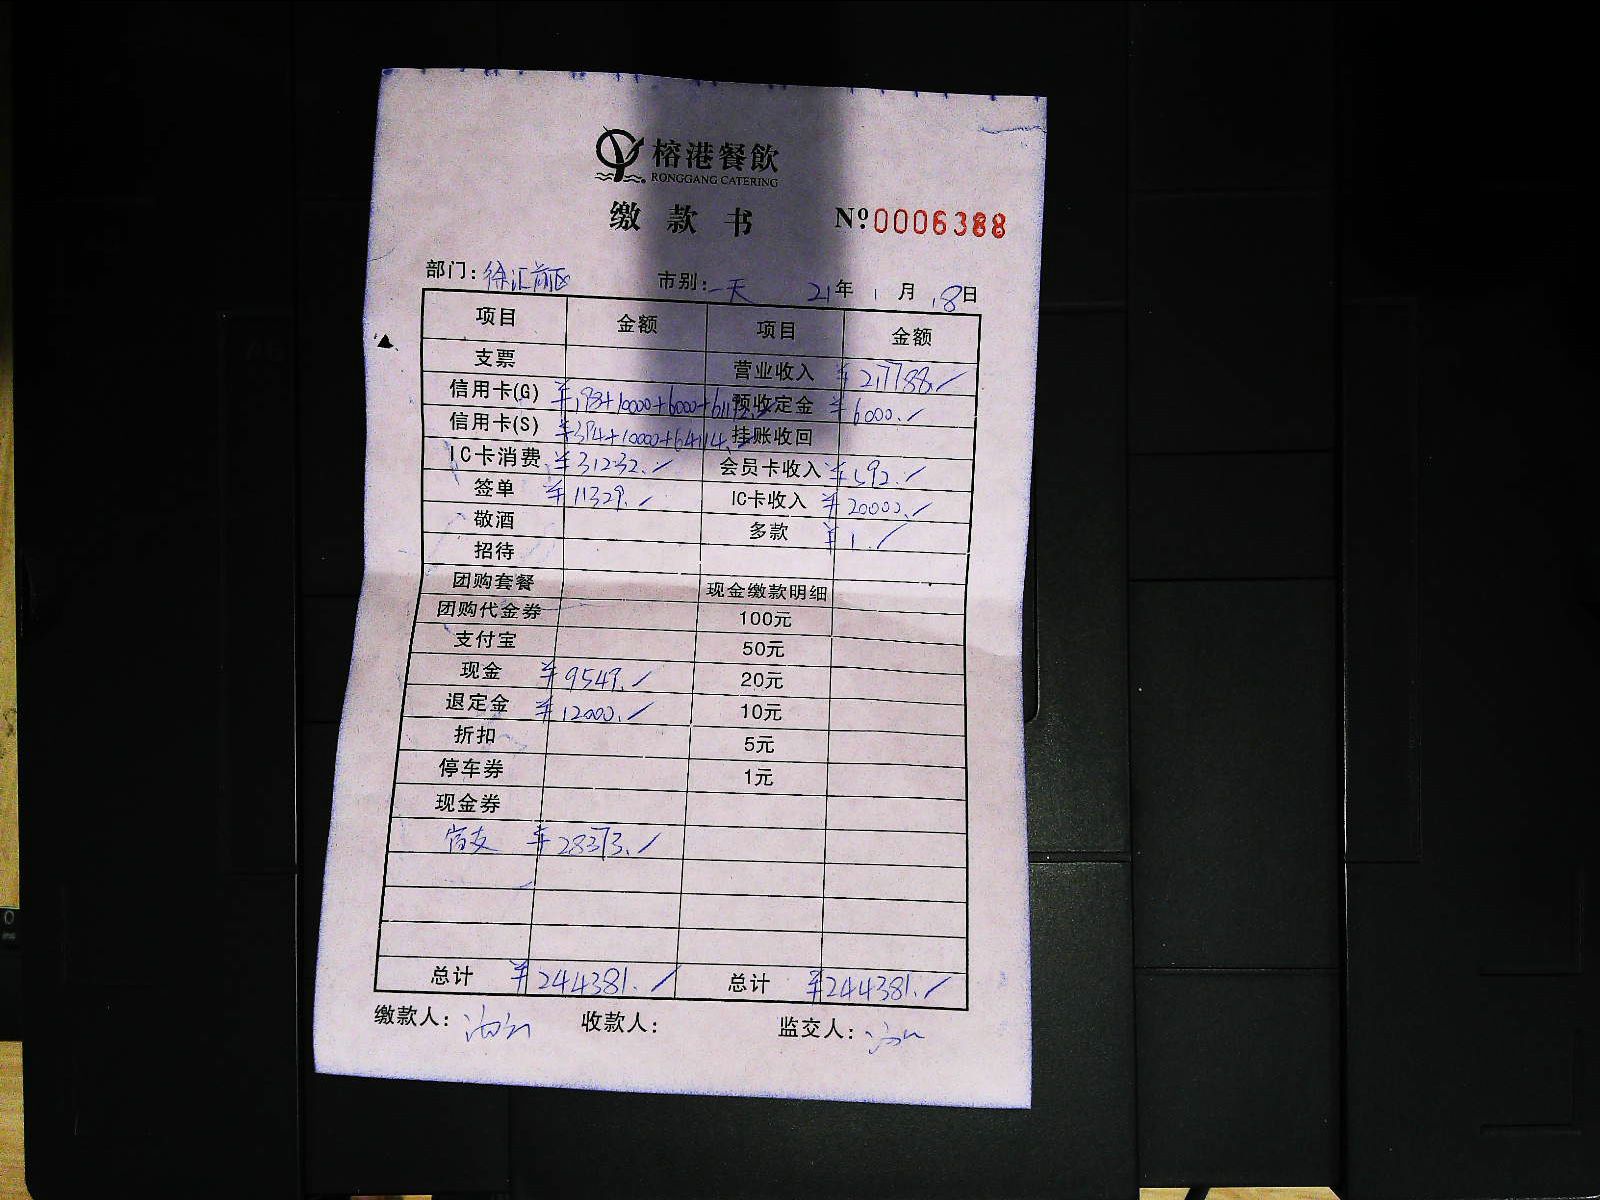 榕港餐飲
RONGGANG CATERING
缴款书 Nº0006388
部门:徐汇前区 市别:一天 21年1月18日
项目 金额 项目 金额
支票 营业收入 ¥217788.
信用卡(G) ¥198+10000+6000+61192. 预收定金 ¥6000.
信用卡(S) ¥394+10000+64114. 挂账收回
IC卡消费 ¥31232. 会员卡收入 ¥592.
签单 ¥11329. IC卡收入 ¥20000.
敬酒 多款 ¥1.
招待
团购套餐 现金缴款明细
团购代金券 100元
支付宝 50元
现金 ¥9549. 20元
退定金 ¥12000. 10元
折扣 5元
停车券 1元
现金券
¥28373.
总计 ¥244381. 总计 ¥244381.
缴款人: 收款人: 监交人: